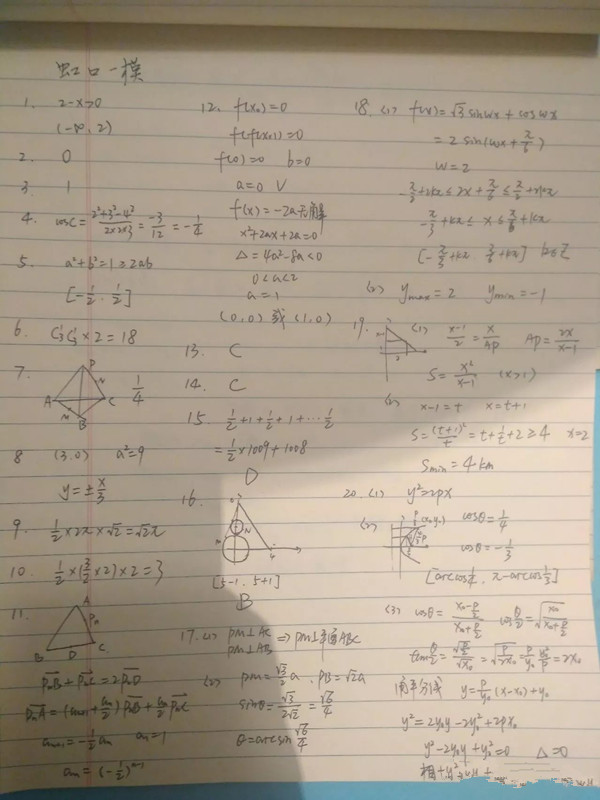 虹口一模
1. 2-x>0
(-∞, 2)
2. 0
3. 1
4. cosC = (2²+3²-4²)/(2×2×3) = -3/12 = -1/4
5. a²+b²=1≥2ab
[-1/2, 1/2]
6. C₃¹C₄¹×2=18
7. 1/4
P
A
B
C
M
N
8 (3,0) a²=9
y=±x/3
9. 1/2×2π×√2=√2π
10. 1/2×(3/2×2)×2=3
11.
A
Pn
B D C
PnB+PnC=2PnD
an+1=-1/2an a1=1
an=(-1/2)ⁿ⁻¹
12. f(x₀)=0
f(f(x₀))=0
f(0)=0 b=0
a=0 √
f(x)=-2a无解
x²+2ax+2a=0
Δ=4a²-8a<0
0<a<2
a=1
(0,0)或(1,0)
13. C
14. C
15. 1/2+1+1/2+1+⋯1/2
=1/2×1009+1008
D
16.
[5-1, 5+1]
B
17.(1) PM⊥AC
PM⊥AB
⇒PM⊥平面ABC
(2) PM=√3/2 a, PB=√2a
sinθ=√3/(2√2)=√6/4
θ=arcsin√6/4
18 (1) f(x)=√3sinωx+cosωx
=2sin(ωx+π/6)
ω=2
-π/2+2kπ≤2x+π/6≤π/2+2kπ
-π/3+kπ≤x≤π/6+kπ
[-π/3+kπ, π/6+kπ] k∈Z
(2) ymax=2 ymin=-1
19. (1) (x-1)/2=x/AP AP=2x/(x-1)
S=x²/(x-1) (x>1)
(2) x-1=t x=t+1
S=(t+1)²/t=t+1/t+2≥4 x=2
Smin=4km
20.(1) y²=2px
(2) P(x₀,y₀) cosθ=1/4
cosθ=-1/3
[arccos1/4, π-arccos1/3]
(3) cosθ=(x₀-p/2)/(x₀+p/2) cosθ/2=√(x₀/(x₀+p/2))
tanθ/2=√(p/2)/√x₀=√(p/2x₀)
角平分线 y=p/y₀(x-x₀)+y₀
y²=2y₀y-2y₀²+2px₀
y²-2y₀y+y₀²=0 Δ=0